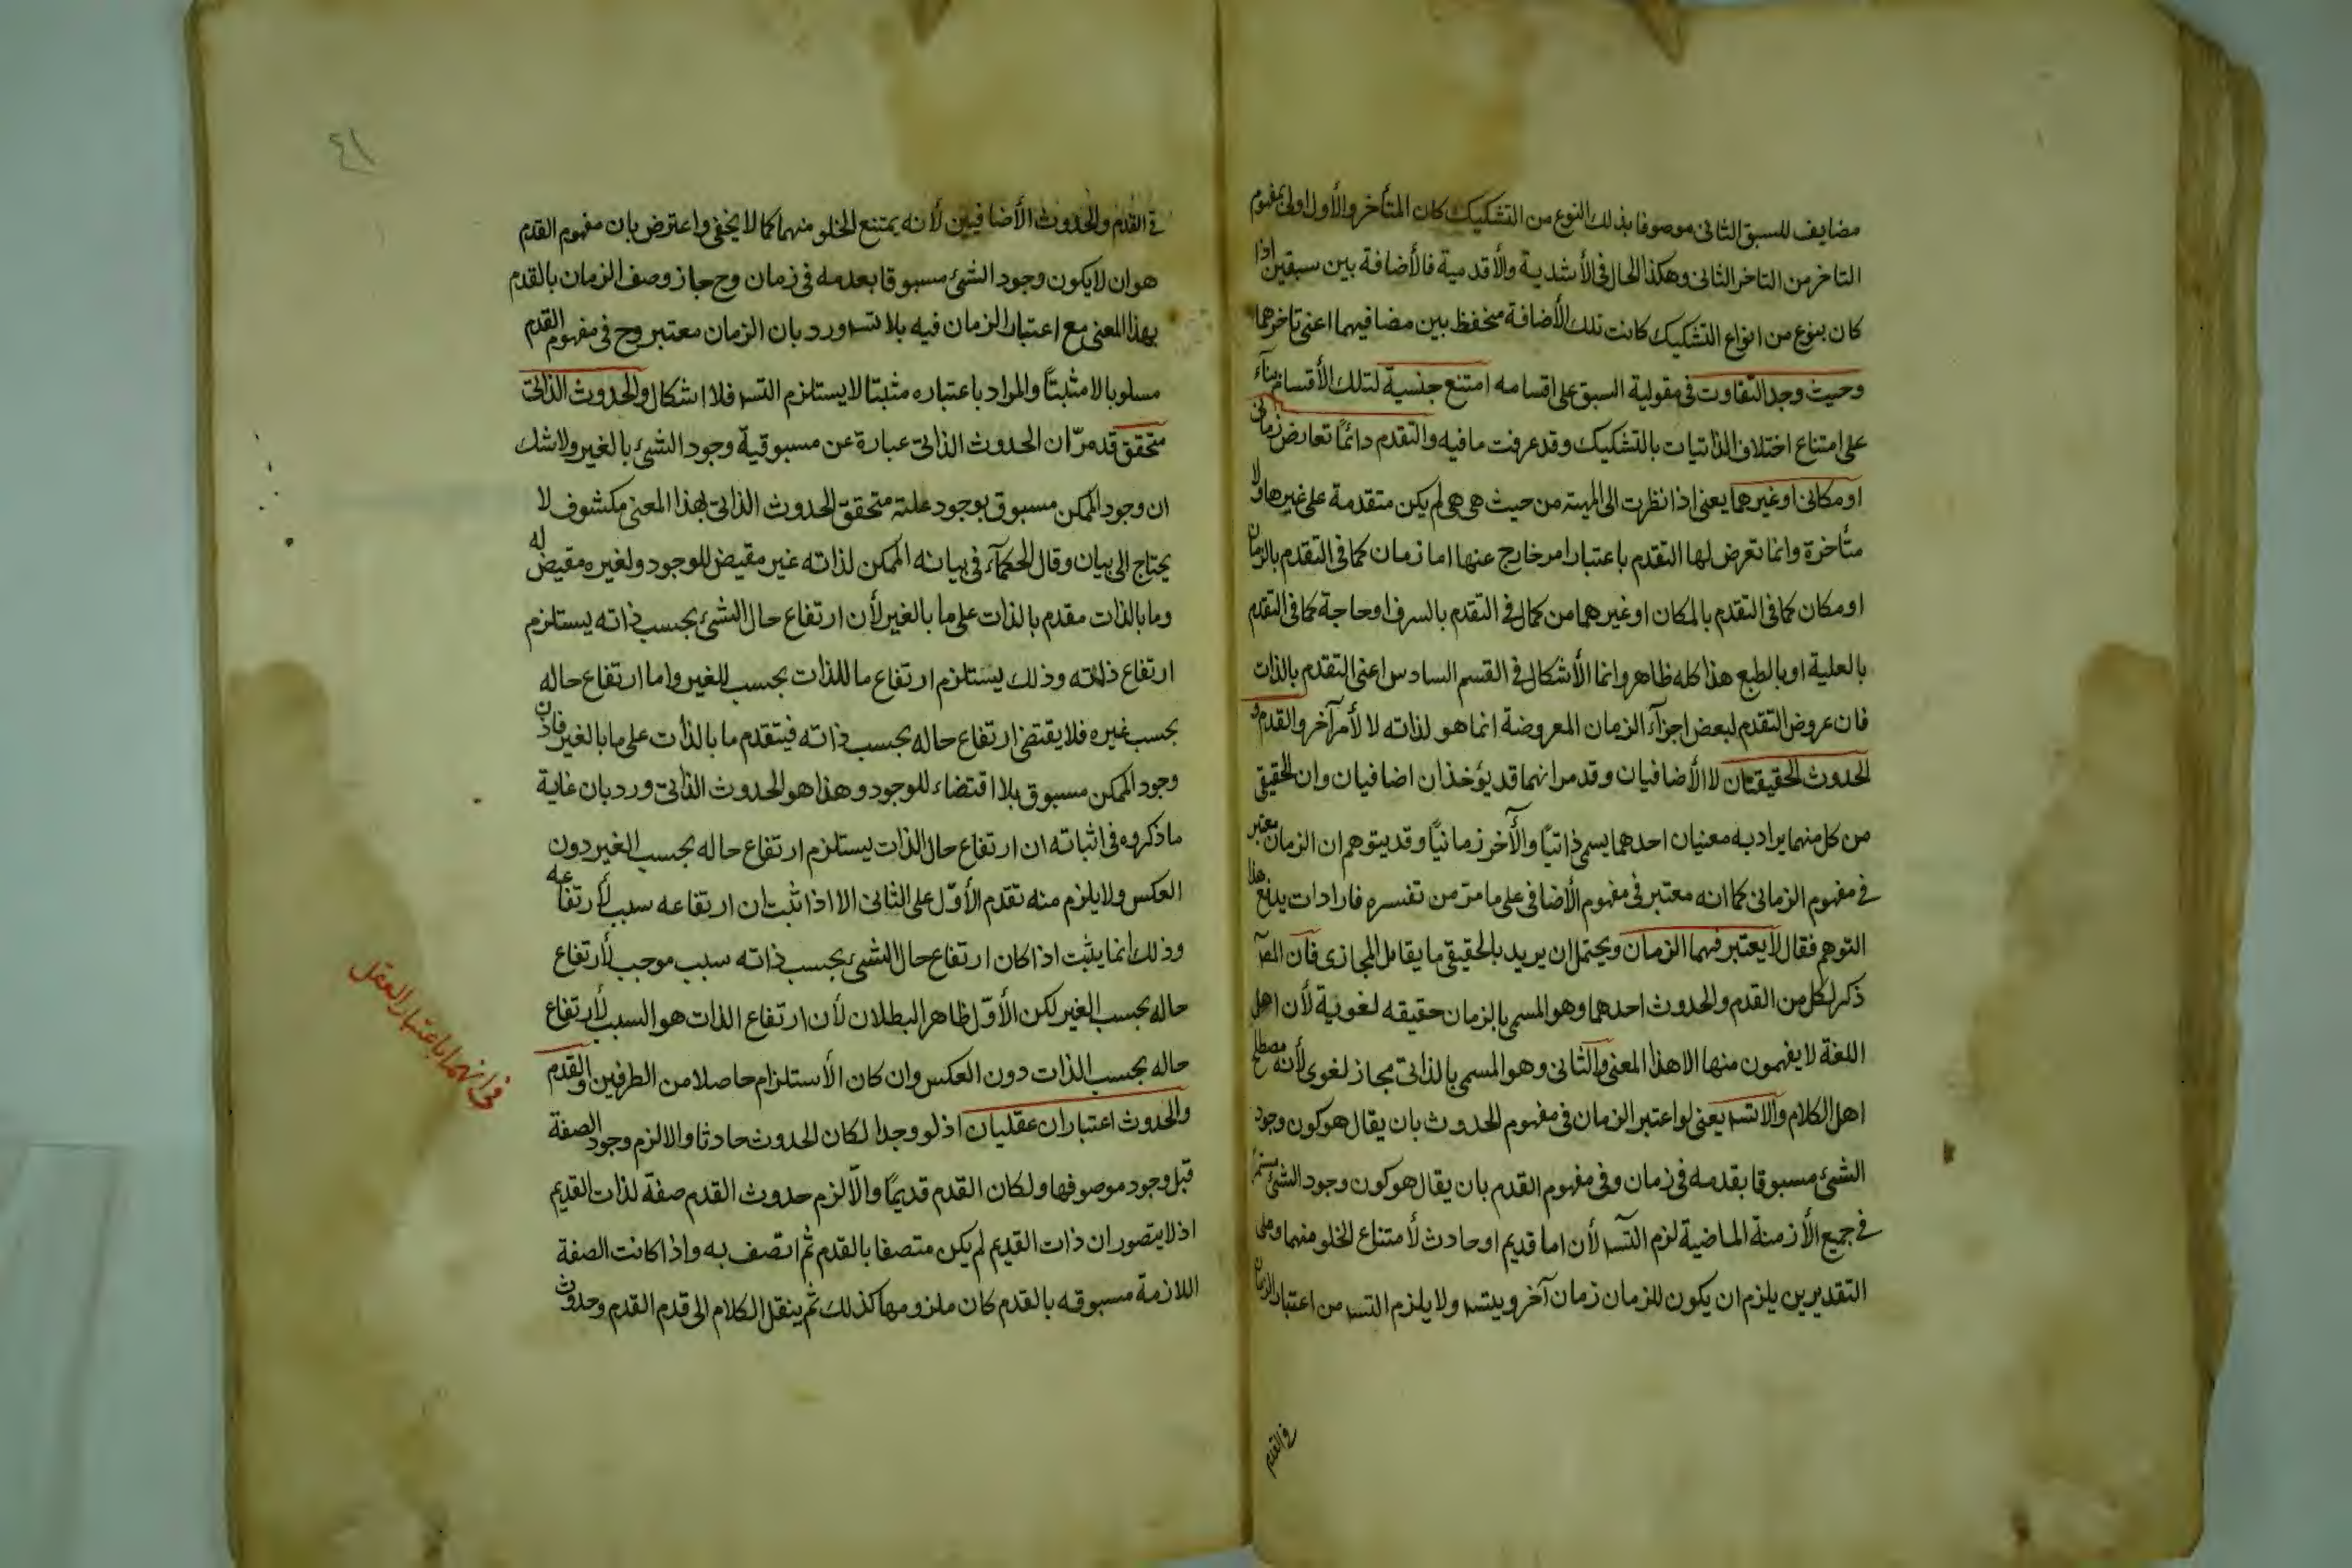 مضايف للسبق الثانى موصوفا بذلك النوع من التشكيك كان المتأخر والأول اولى بمفهوم
التاخر من التاخر الثانى وهكذا الحال فى الأشدية والأقدمية فالأضافة بين سبقين اذا
كان بنوع من انواع التشكيك كانت تلك الأضافة منحفظ بين مضافيهما اعنى تاخرهما
وحيث وجد التفاوت فى مقولية السبق على اقسامه امتنع جنسية لتلك الأقسام بناء
على امتناع اختلاف الذاتيات بالتشكيك وقد عرفت ما فيه والتقدم دائمًا تعارض زمانى
او مكانى او غيرهما يعنى اذا نظرت الى المهية من حيث هى هى لم يكن متقدمة على غيرها ولا
متأخرة وانما تعرض لها التقدم باعتبار امر خارج عنها اما زمان كما فى التقدم بالزمان
او مكان كما فى التقدم بالمكان او غيرهما من كمال فى التقدم بالسرف او حاجة كما فى التقدم
بالعلية او بالطبع هذا كله ظاهر وانما الأشكال فى القسم السادس اعنى التقدم بالذات
فان عروض التقدم لبعض اجزآء الزمان المعروضة انما هو لذاته لا لأمر آخر والقدم و
الحدوث الحقيقيان لا الأضافيان وقد مر انهما قد يؤخذان اضافيان وان الحقيقى
من كل منهما يراد به معنيان احدهما يسمى ذاتيًا والآخر زمانيًا وقد يتوهم ان الزمان معتبر
فى مفهوم الزمانى كما انه معتبر فى مفهوم الأضافى على ما مر من تفسره فاراد ات يدفع هذا
التوهم فقال لا يعتبر فهما الزمان ويحتمل ان يريد بالحقيقى ما يقابل المجازى فان المص
ذكر لكل من القدم والحدوث احدهما وهو المسمى بالزمان حقيقه لغوية لأن اهل
اللغة لا يفهمون منها الا هذا المعنى والثانى وهو المسمى بالذاتى مجاز لغوى لأنه مصطلح
اهل الكلام والا تسه يعنى لو اعتبر الزمان فى مفهوم الحدوث بان يقال هو كون وجود
الشئ مسبوقا بقدمه فى زمان وفى مفهوم القدم بان يقال هو كون وجود الشئ مستمر
فى جميع الأزمنة الماضية لزم التسه لأن اما قديم او حادث لأمتناع الخلو منهما وعلى
التقديرين يلزم ان يكون للزمان زمان آخر ويتسه ولا يلزم التسه من اعتبار الزمان
فى القدم
٤١
فى القدم والحدوث الأضافيين لأنه يمتنع الخلو منهما كما لا يخفى واعترض بان مفهوم القدم
هو ان لا يكون وجود الشئ مسبوقا بعدمه فى زمان وح جاز وصف الزمان بالقدم
بهذا المعنى مع اعتبار الزمان فيه بلا تسه ورد بان الزمان معتبر وح فى مفهوم القدم
مسلوبا لا مثبتًا والمراد باعتباره مثبتا لا يستلزم التسه فلا اشكال والحدوث الذاتى
متحقق قد مرّ ان الحدوث الذاتى عبارة عن مسبوقية وجود الشئ بالغير ولا شك
ان وجود الممكن مسبوق بوجود علته متحقق الحدوث الذاتى بهذا المعنى مكشوف لا
يحتاج الى بيان وقال الحكمآء فى بيانه الممكن لذاته غير مقيض للوجود ولغيره مقيض له
وما بالذات مقدم بالذات على ما بالغير لأن ارتفاع حال الشئ بحسب ذاته يستلزم
ارتفاع ذاته وذلك يستلزم ارتفاع ما للذات بحسب الغير واما ارتفاع حاله
بحسب غيره فلا يقتضى ارتفاع حاله بحسب ذاته فيتقدم ما بالذات على ما بالغير فاذن
وجود الممكن مسبوق بلا اقتضاء للوجود وهذا هو الحدوث الذاتى ورد بان غاية
ما ذكروه فى اثباته ان ارتفاع حال الذات يستلزم ارتفاع حاله بحسب الغير دون
العكس ولا يلزم منه تقدم الأوّل على الثانى الا اذا ثبت ان ارتفاعه سبب لأرتفاعه
وذلك انما يثبت اذا كان ارتفاع حال الشئ بحسب ذاته سبب موجب لأرتفاع
حاله بحسب الغير لكن الأوّل ظاهر البطلان لأن ارتفاع الذات هو السبب لأرتفاع
حاله بحسب الذات دون العكس وان كان الأستلزام حاصلا من الطرفين والقدم
والحدوث اعتباران عقليان اذ لو وجدا لكان الحدوث حادثا والا لزم وجود الصفة
قبل وجود موصوفها ولكان القدم قديمًا والّا لزم حدوث القدم صفة لذات القديم
اذ لا يتصور ان ذات القديم لم يكن متصفا بالقدم ثم اتصف به واذا كانت الصفة
اللازمة مسبوقه بالقدم كان ملزومها كذلك ثم ينقل الكلام الى قدم القدم وحدوث
فى انهما باعتبار العقل